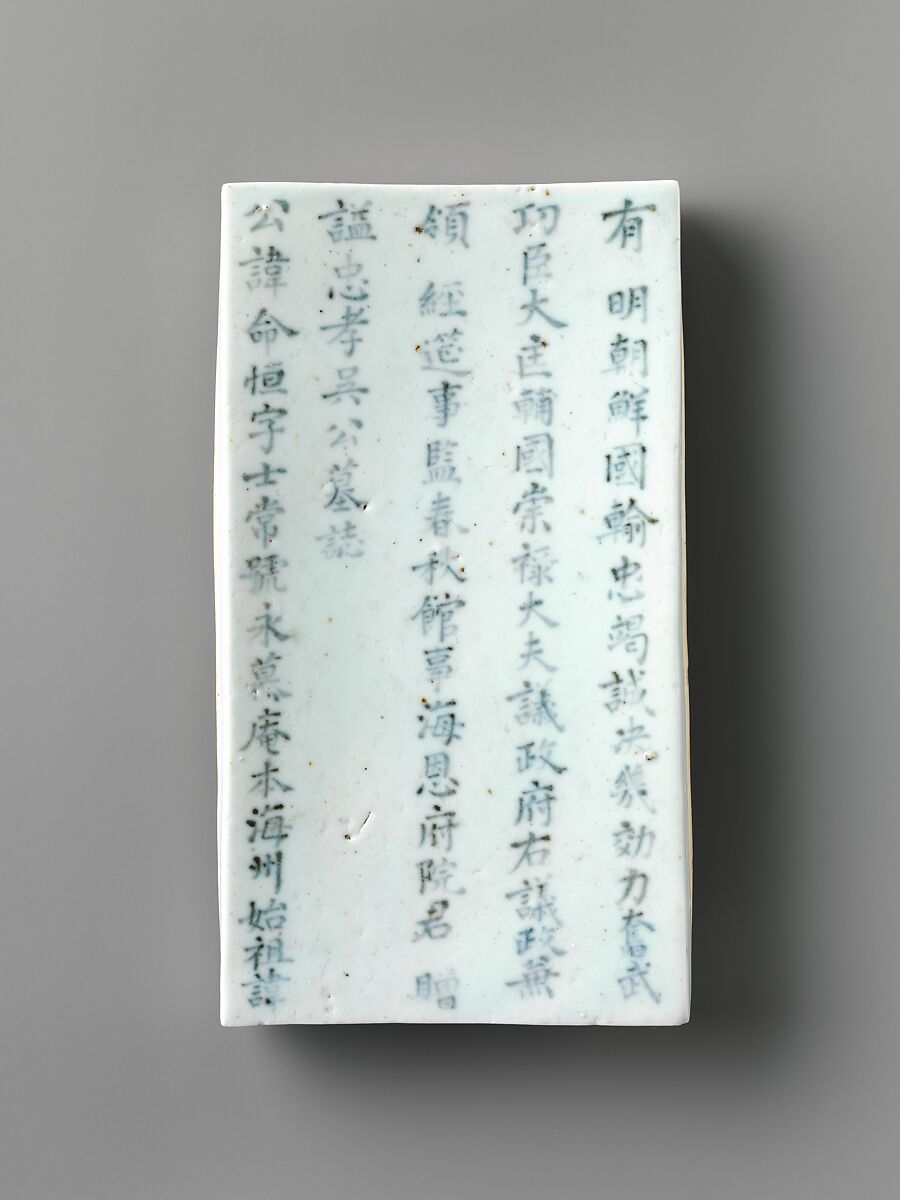 有 明朝鮮國輸忠竭誠决幾効力奮武
功臣大匡輔國崇禄大夫議政府右議政兼
領 經筵事監春秋館事海恩府院君 贈
謚忠孝吳公墓誌
公諱命恒字士常號永慕庵本海州始祖諱